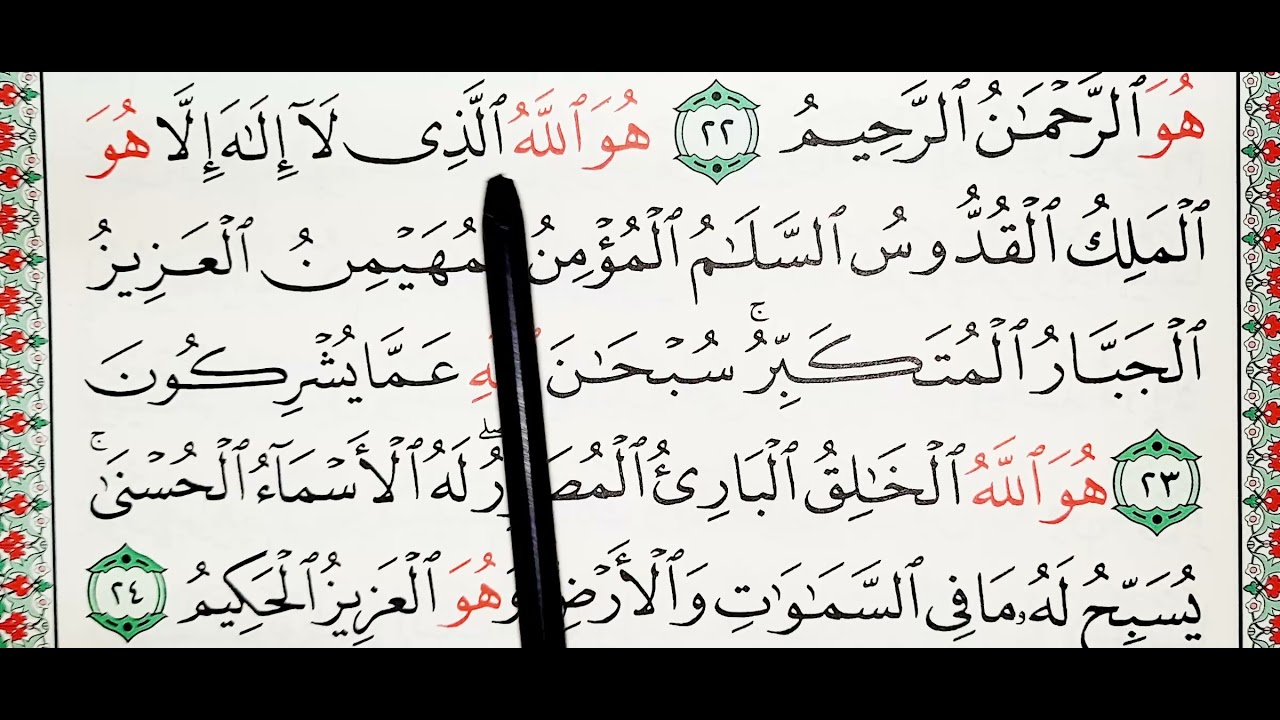 هُوَ ٱلرَّحْمَٰنُ ٱلرَّحِيمُ ٢٢ هُوَ ٱللَّهُ ٱلَّذِى لَآ إِلَٰهَ إِلَّا هُوَ
ٱلْمَلِكُ ٱلْقُدُّوسُ ٱلسَّلَٰمُ ٱلْمُؤْمِنُ ٱلْعَزِيزُ
ٱلْجَبَّارُ ٱلْمُتَكَبِّرُ ۚ سُبْحَٰنَ عَمَّا يُشْرِكُونَ
٢٣ هُوَ ٱللَّهُ ٱلْخَٰلِقُ ٱلْبَارِئُ لَهُ ٱلْأَسْمَآءُ ٱلْحُسْنَىٰ ۚ
يُسَبِّحُ لَهُۥ مَا فِى ٱلسَّمَٰوَٰتِ وَٱلْأَرْضِ وَهُوَ ٱلْعَزِيزُ ٱلْحَكِيمُ ٢٤